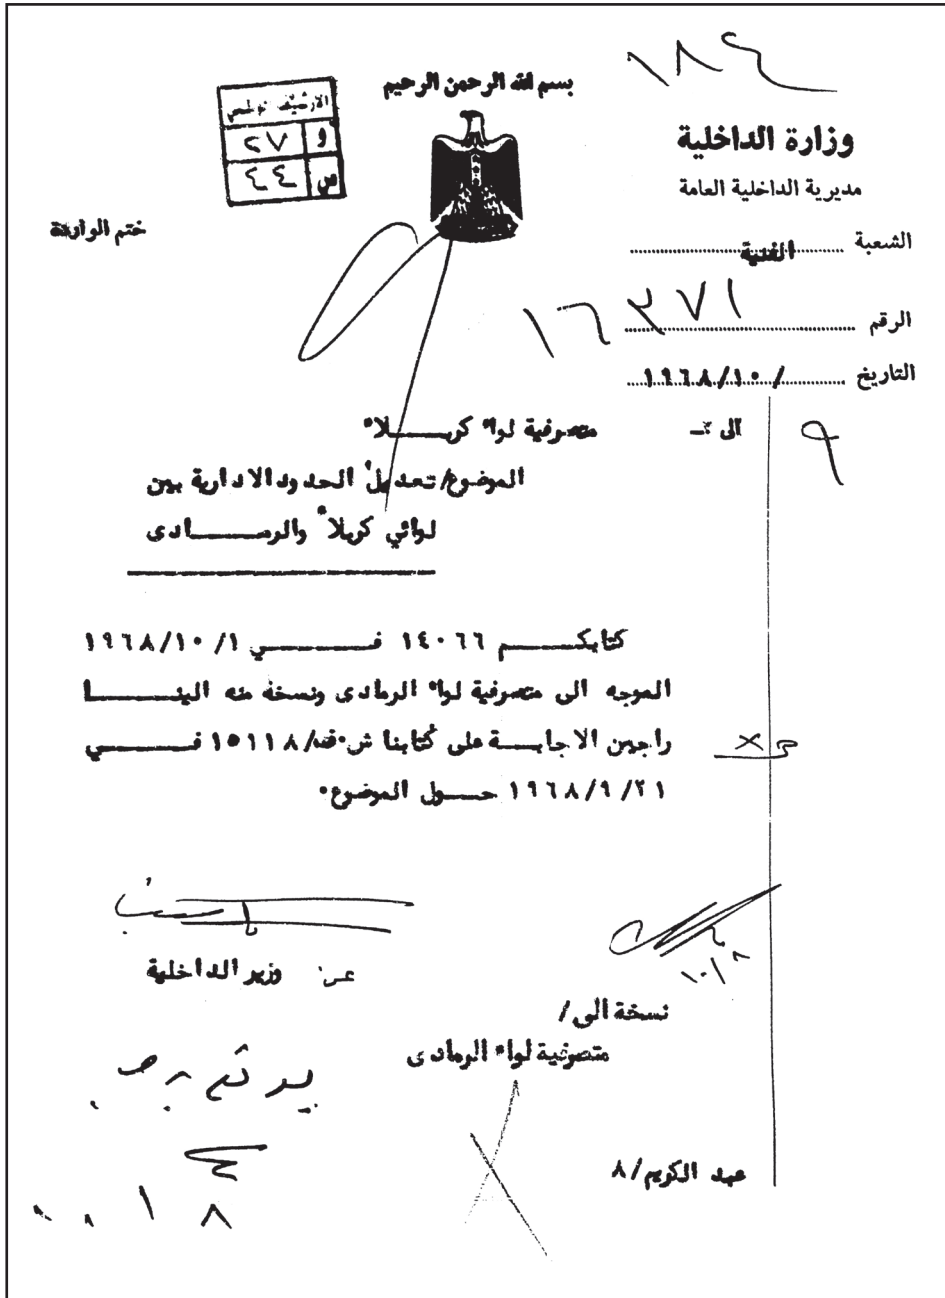 ١٨٤
بسم الله الرحمن الرحيم
و ٢٧
ص ٤٤
وزارة الداخلية
مديرية الداخلية العامة
ختم الواردة
الشعبة الفنية
الرقم ١٦٣٧١
التاريخ /١٩٦٨/١٠
٩
الى :ـ متصرفية لواء كربلاء
الموضوع/ تعديل الحدود الادارية بين
لوائي كربلاء والرمادى
كتابكم ١٤٠٦٦ في ١٩٦٨/١٠/١
الموجه الى متصرفية لواء الرمادى ونسخة منه الينا
راجين الاجابة على كتابنا ش٠فه/١٥١١٨ في
١٩٦٨/٩/٢١ حول الموضوع٠
عن/ وزير الداخلية
١٠/٨
نسخة الى/
متصرفية لواء الرمادى
عبد الكريم/٨